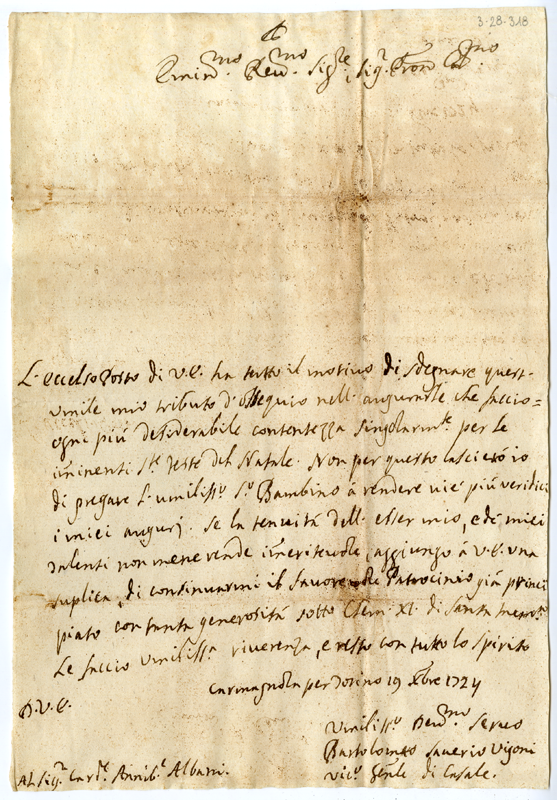 3-28-318
Emin.mo Reu.mo Sig.re, Sig.r Pron
L'eccelso Posto di V.E. ha tutto il motiuo di sdegnare quest-
vmile mio tributo d'ossequio nell'augurarle che faccio-
ogni più desiderabile contentezza singolarm.te per le
imminenti S.te feste del Natale. Non per questo lascierò io
di pregare l'umiliss.o S.o Bambino à rendere vie più veridici
i miei augurj. Se la tenuità dell'esser mio, e de miei
talenti non me ne rende imeriteuole, aggiungo à V.E. vna
suplica, di continuarmi il fauoreuole Patrocinio già princi
piato con tanta generosità sotto Clem. XI. di santa mem.
Le faccio vmilissa riuerenza, e resto con tutto lo spirito
Carmagnola per Torino 19 Xbre 1724
D.V.E.
Vmiliss.o Deu.mo Seruo
Bartolomeo Sauerio Vigoni
Vic.o Gen.le di Casale.
Al Sig.r Card.e Annib.e Albani.